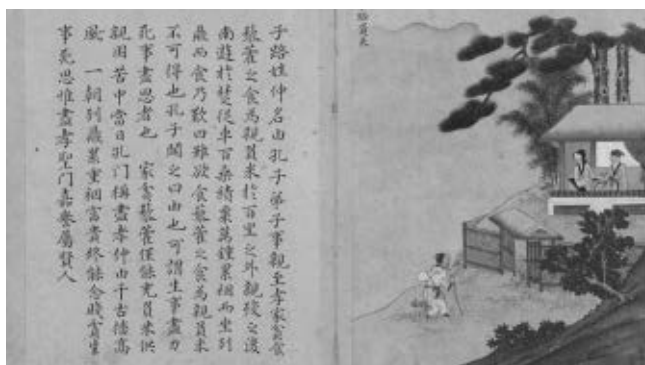 路負米
子路姓仲名由孔子弟子事親至孝家貧食
藜藿之食為親負米於百里之外親歿之後
南遊於楚從車百乘積粟萬鍾累裀而坐列
鼎而食乃歎曰雖欲食藜藿之食為親負米
不可得也孔子聞之曰由也可謂生事盡力
死事盡思者也 家貧藜藿僅能充負米供
親困苦中當日孔門稱盡孝仲由千古播高
風 一朝列鼎累重裀富貴終能念賤貧生
事死思惟盡孝聖門嘉譽屬賢人